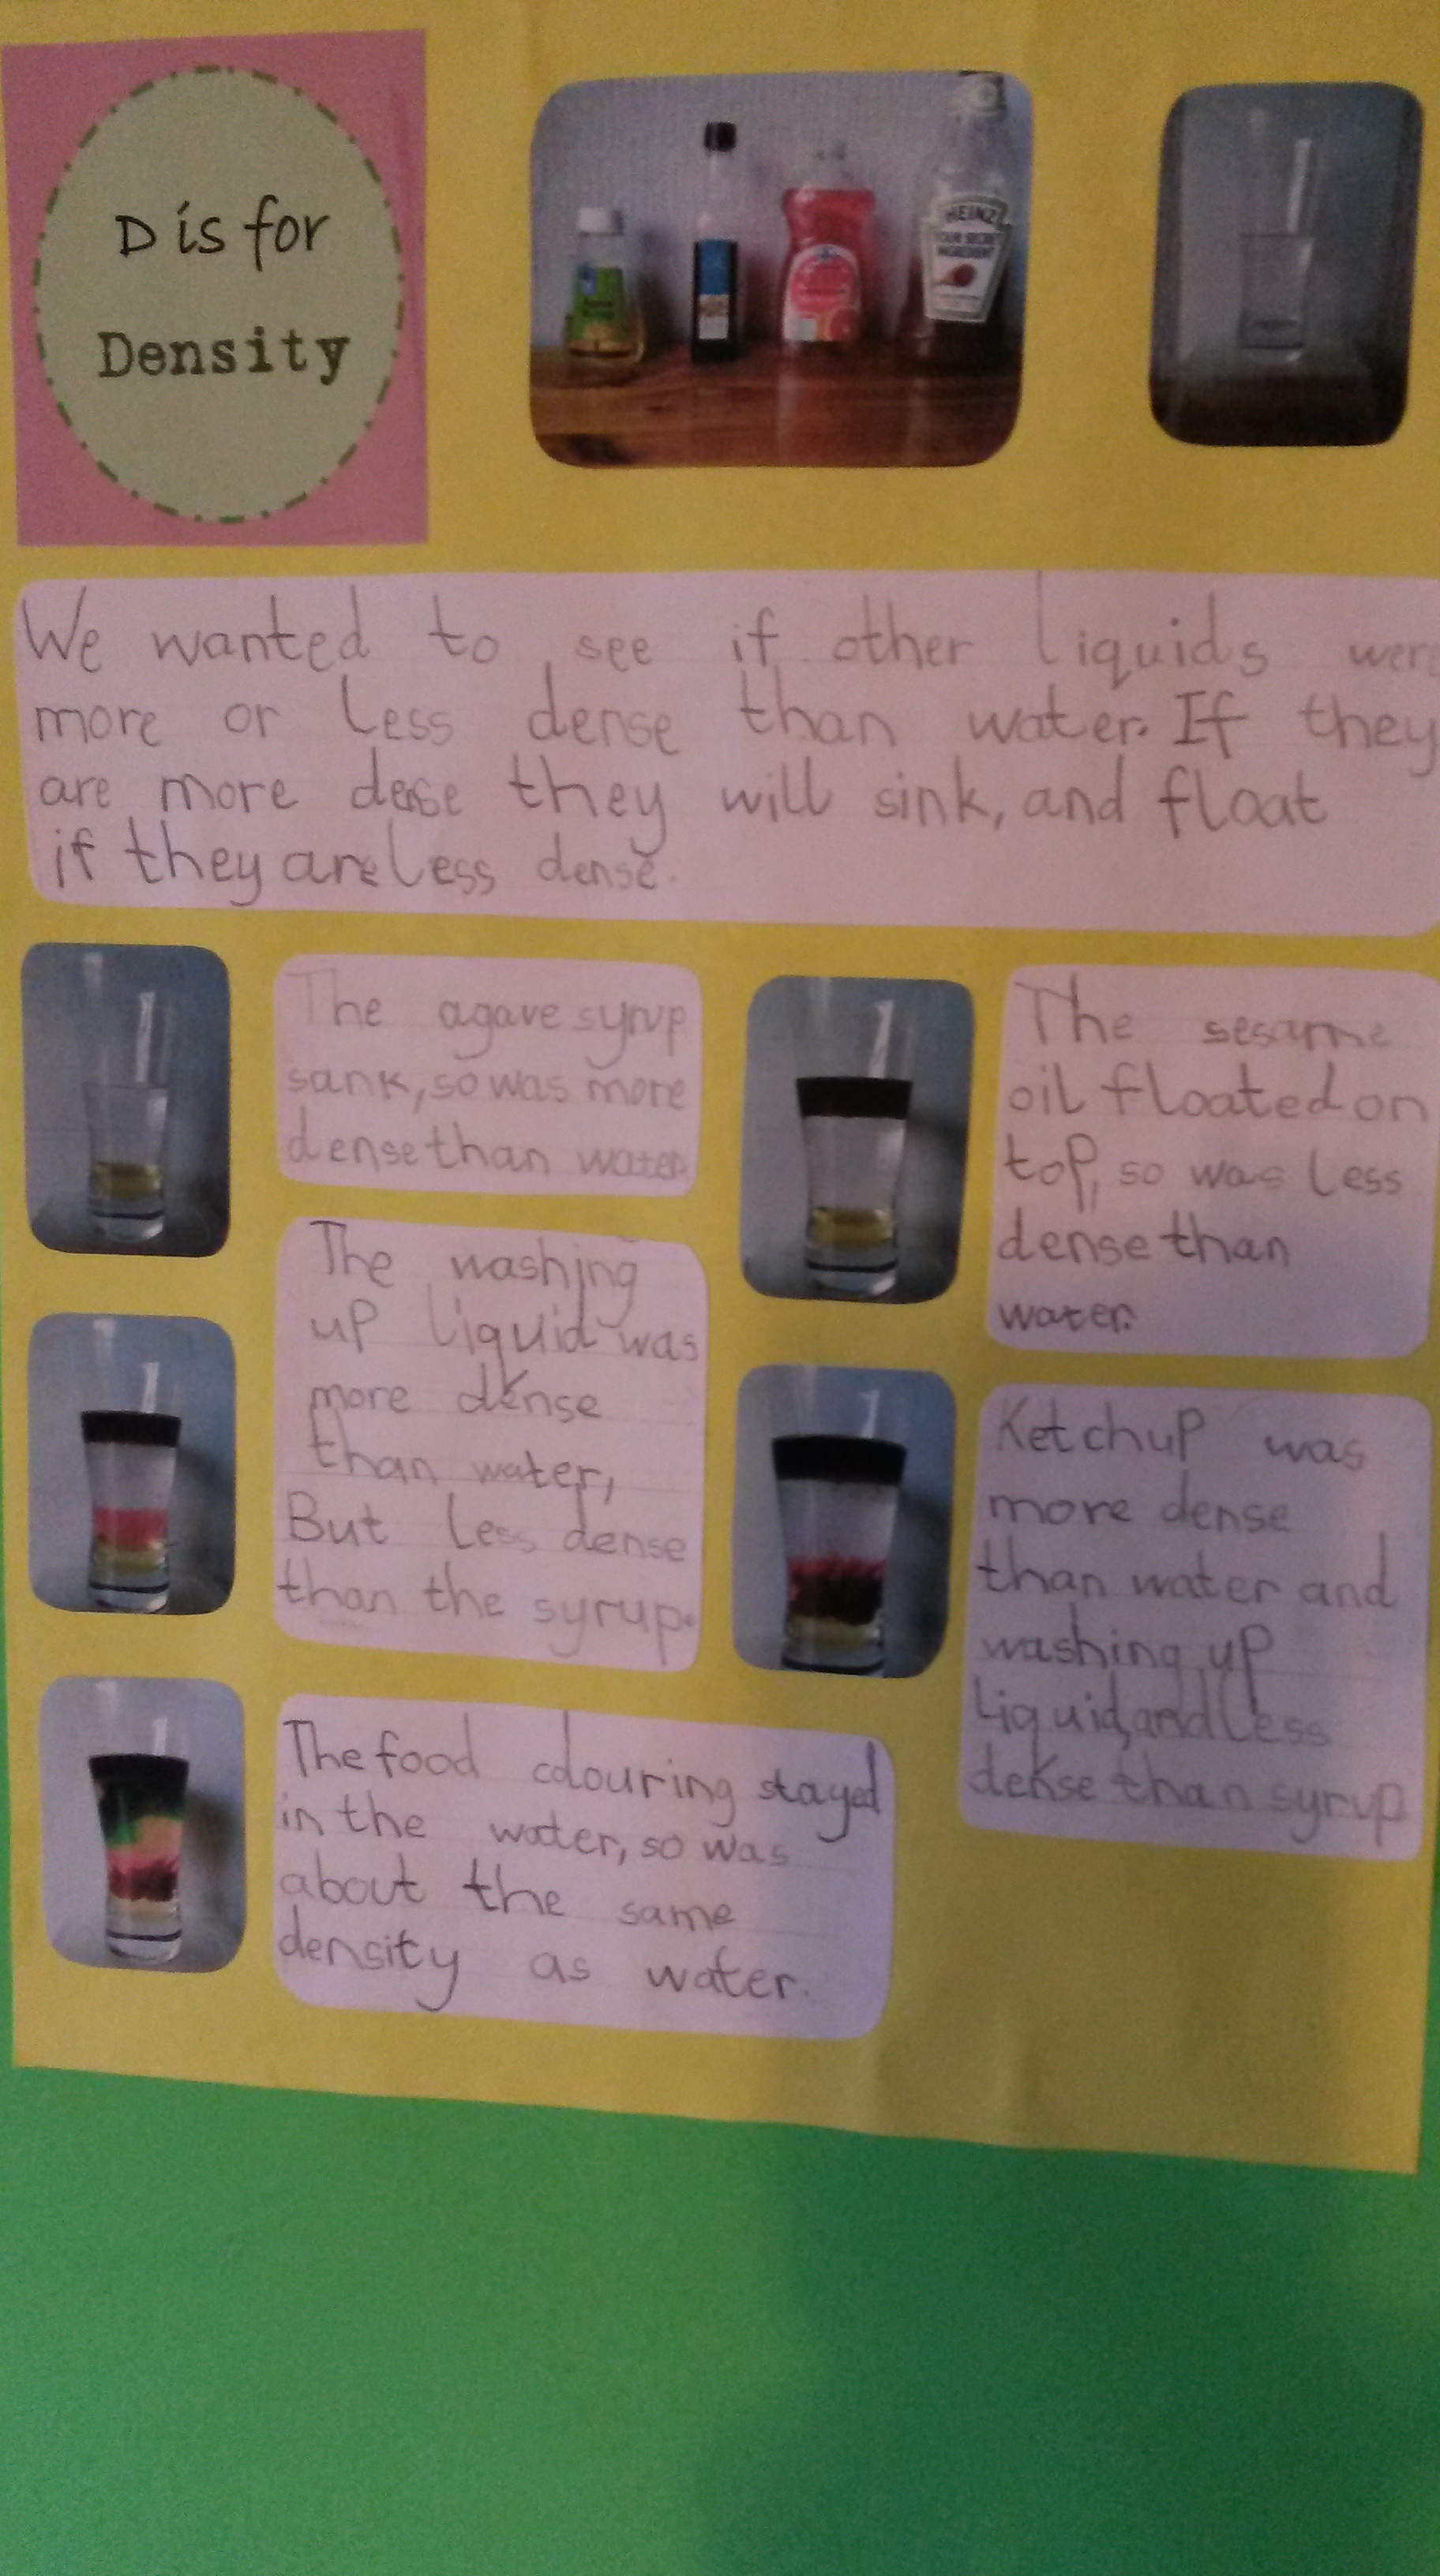 D is for
Density
HEINZ
We wanted to see if other liquids were
more or less dense than water. If they
are more dense they will sink, and float
if they are less dense.
The agave syrup
sank, so was more
dense than water.
The sesame
oil floated on
top, so was less
dense than
water.
The washing
up liquid was
more dense
than water,
But less dense
than the syrup.
Ketchup was
more dense
than water and
washing up
liquid, and less
dense than syrup
The food colouring stayed
in the water, so was
about the same
density as water.